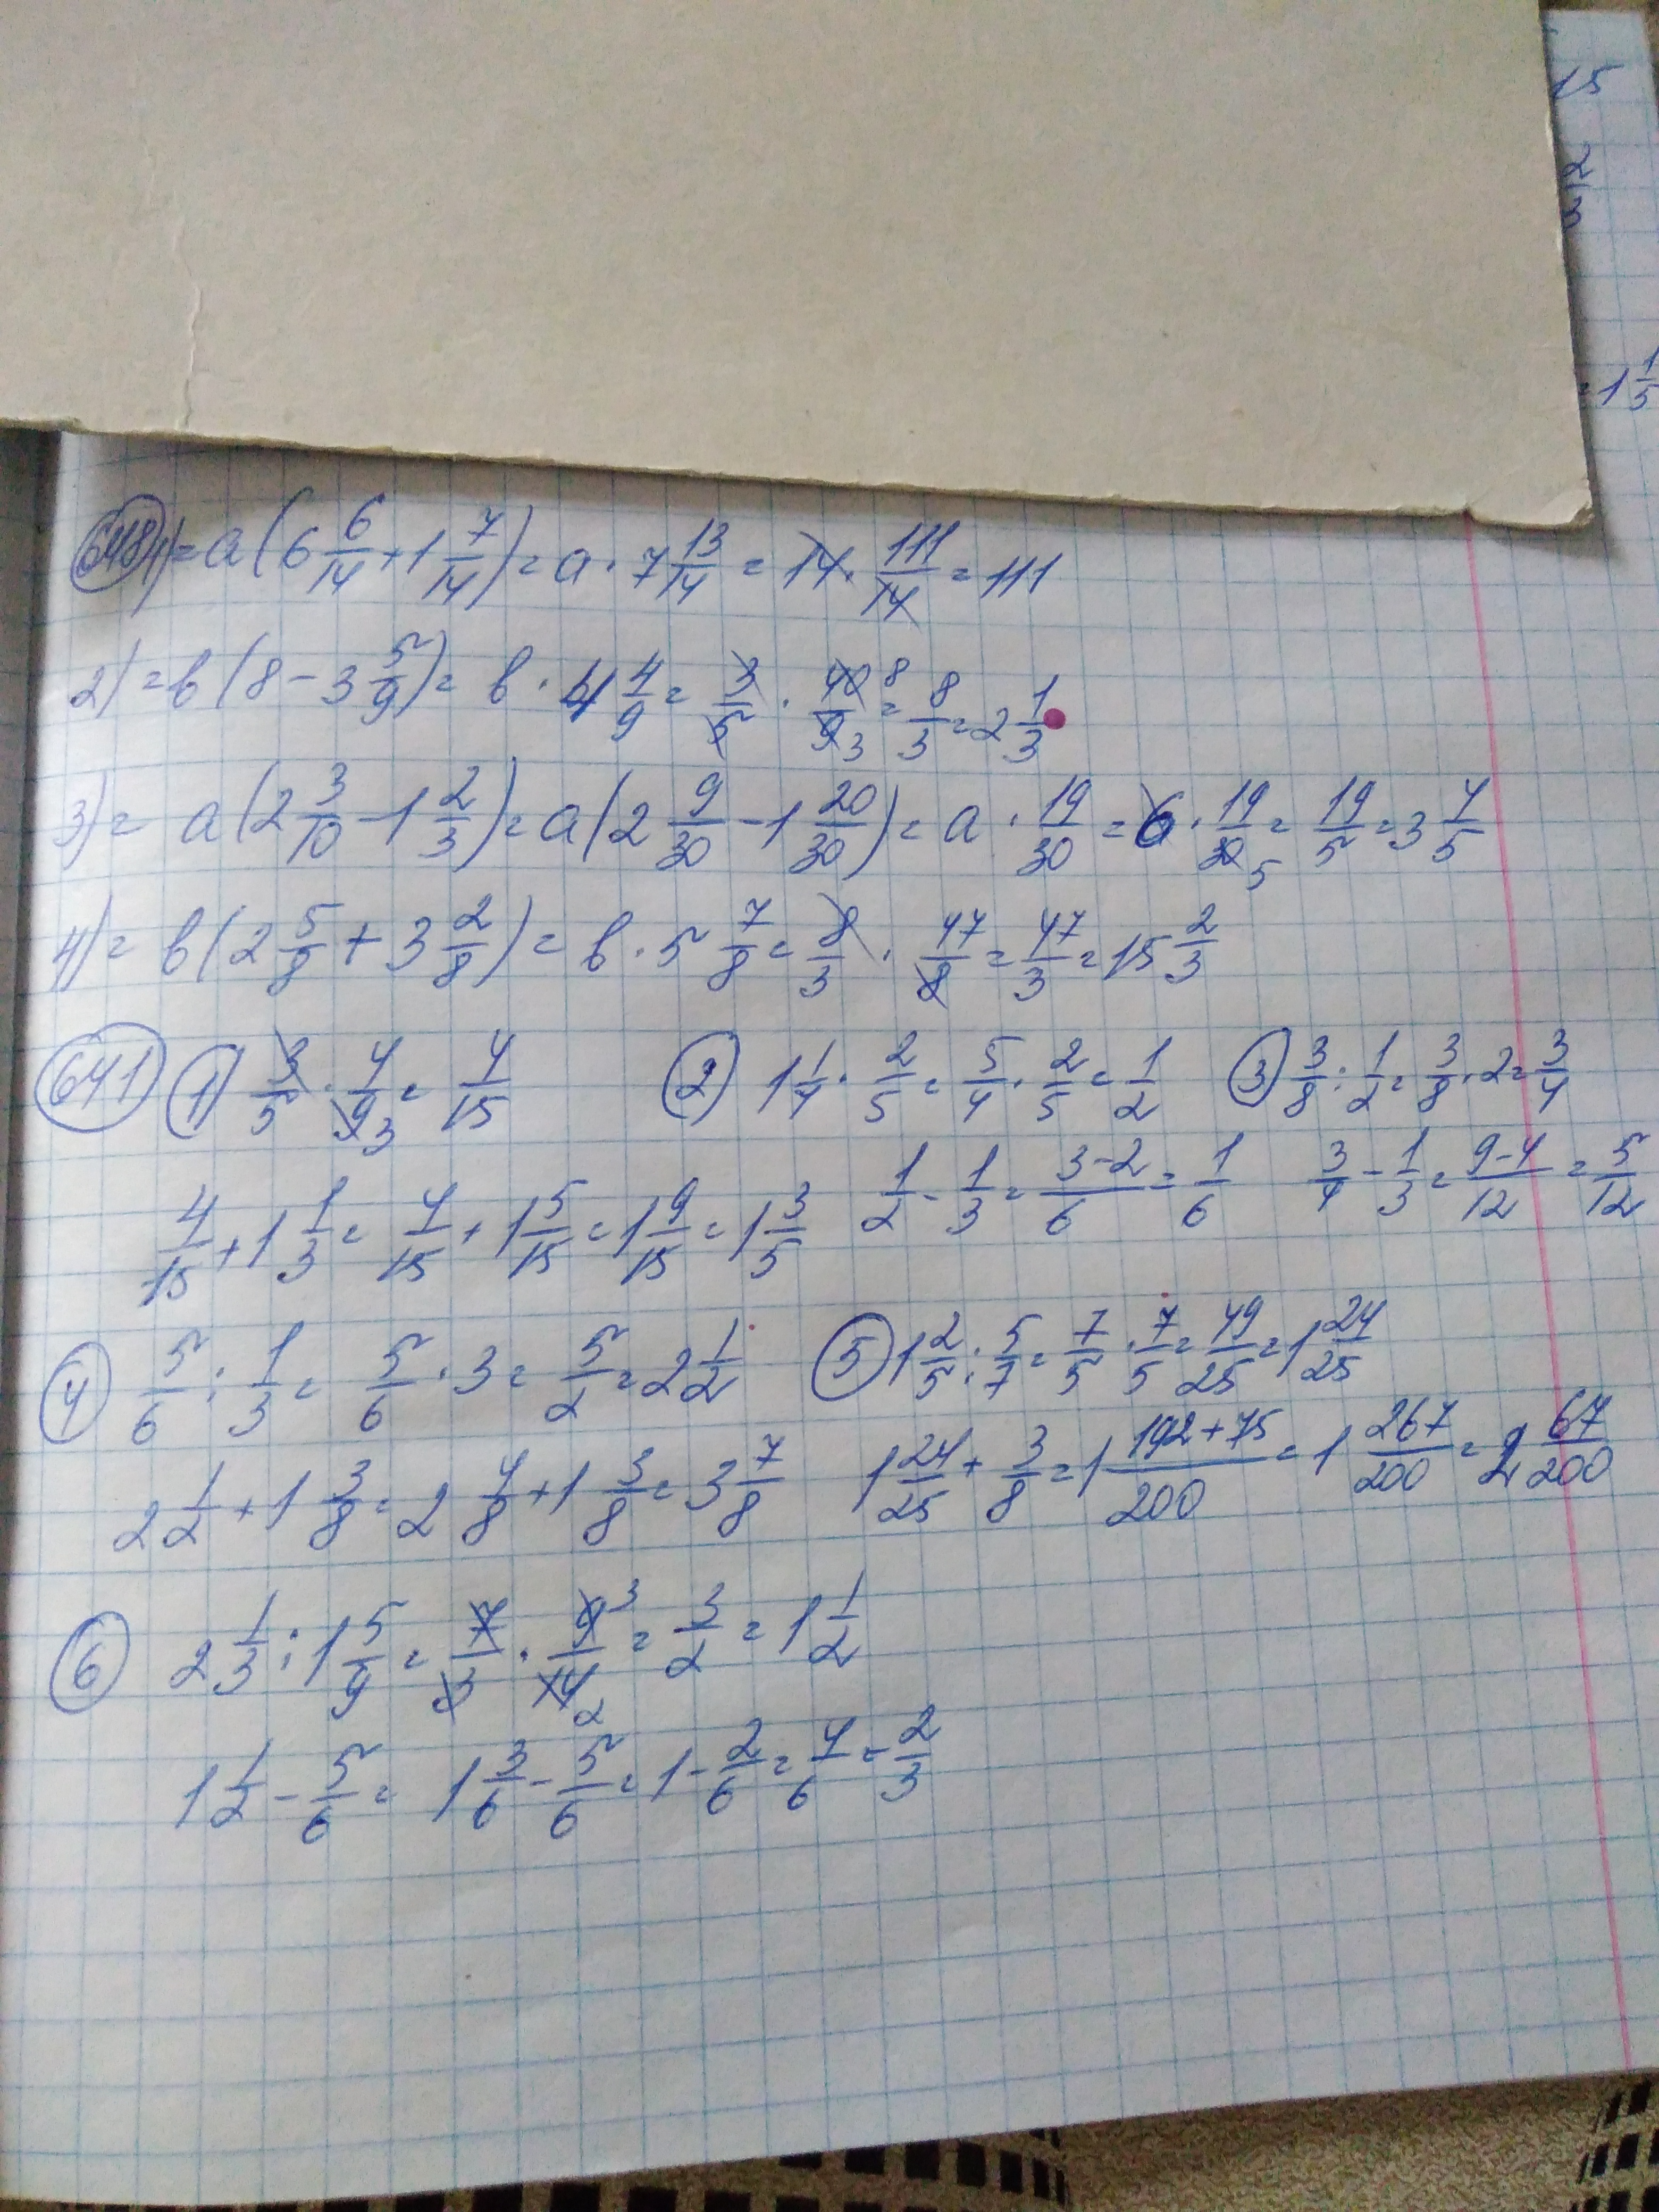 15
2
3
= 1 1/5
648 1) = a (6 6/14 + 1 7/14) = a · 7 13/14 = 14 · 111/14 = 111
2) = b (8 - 3 5/9) = b · 4 4/9 = 3/5 · 40/9 8 3 = 8/3 = 2 1/3
3) = a (2 3/10 - 1 2/3) = a (2 9/30 - 1 20/30) = a · 19/30 = 6 · 19/30 5 = 19/5 = 3 4/5
4) = b (2 5/8 + 3 2/8) = b · 5 7/8 = 8/3 · 47/8 = 47/3 = 15 2/3
641 1) 3/5 · 4/9 3 = 4/15 2 1 1/4 · 2/5 = 5/4 · 2/5 = 1/2 3 3/8 : 1/2 = 3/8 · 2 = 3/4
4/15 + 1 1/3 = 4/15 + 1 5/15 = 1 9/15 = 1 3/5 1/2 - 1/3 = 3-2/6 = 1/6 3/4 - 1/3 = 9-4/12 = 5/12
4 5/6 : 1/3 = 5/6 · 3 = 5/2 = 2 1/2 5 1 2/5 : 5/7 = 7/5 · 7/5 = 49/25 = 1 24/25
2 1/2 + 1 3/8 = 2 4/8 + 1 3/8 = 3 7/8 1 24/25 + 3/8 = 1 192+75/200 = 1 267/200 = 2 67/200
6 2 1/3 : 1 5/9 = 7/3 · 9/14 3 2 = 3/2 = 1 1/2
1 1/2 - 5/6 = 1 3/6 - 5/6 = 1 - 2/6 = 4/6 = 2/3